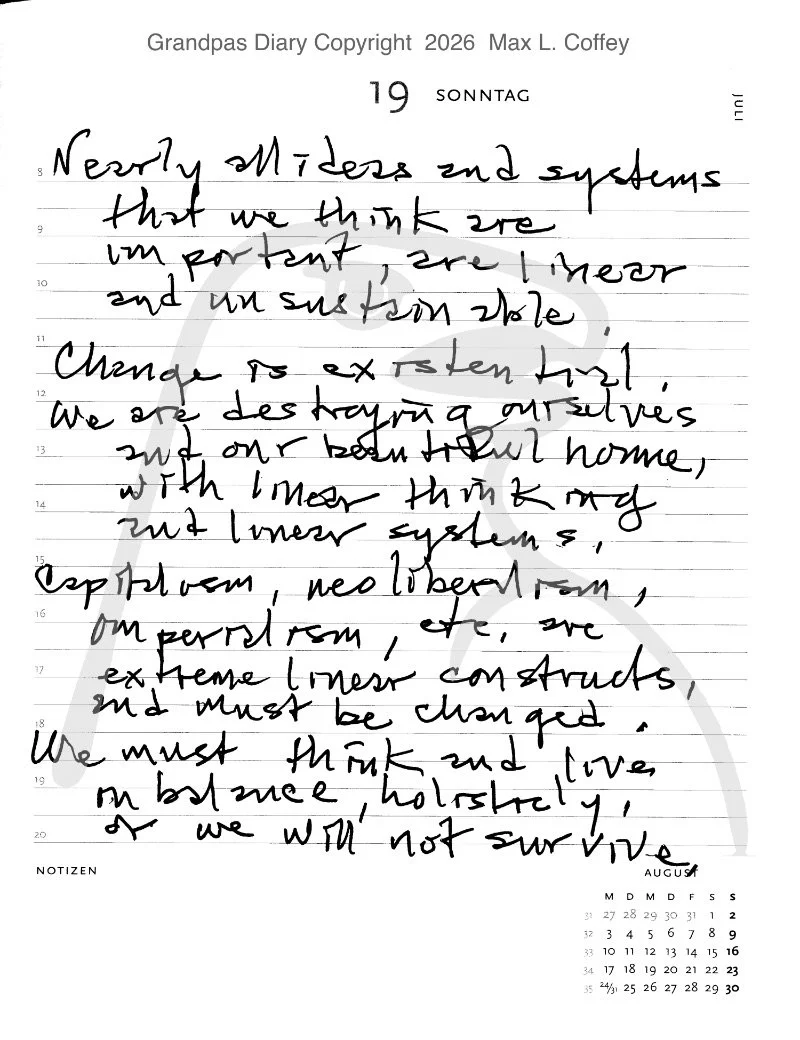 Grandpas Diary Copyright 2026 Max L. Coffey
19 SONNTAG
JULI
8 Nearly all ideas and systems
that we think are
9
important, are linear
10
and unsustainable.
11
Change is existential.
12
We are destroying ourselves
13 and our beautiful home,
with linear thinking
14
and linear systems,
15
Capitalism, neoliberalism,
16
imperialism, etc, are
17 extreme linear constructs,
and must be changed.
18
We must think and live,
19
in balance, holisticly,
20 or we will not survive.
NOTIZEN
AUGUST
M D M D F S S
31 27 28 29 30 31 1 2
32 3 4 5 6 7 8 9
33 10 11 12 13 14 15 16
34 17 18 19 20 21 22 23
35 24/31 25 26 27 28 29 30